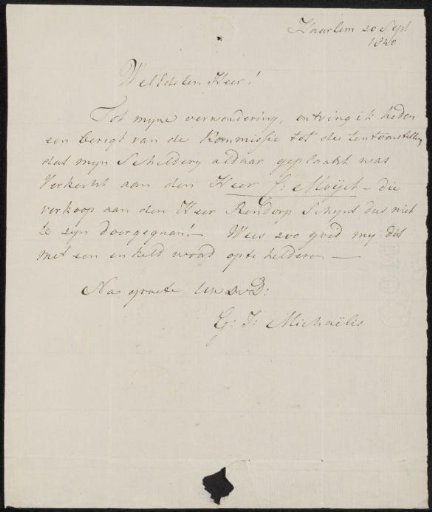 Haarlem 20 Sept
1840
Wel Edelen Heer!
Tot myne verwondering, ontving ik heden
een berigt van de Kommissie tot de tentoonstelling
dat myn Schildery aldaar geplaatst was
Verkocht aan den Heer J: - die
verkoop aan den Heer Rendorp Schynt dus niet
te zyn doorgegaan! Wees zoo goed my dit
met een enkeld woord op te helderen —
Na groete Uw D:
G: J: Michaëlis